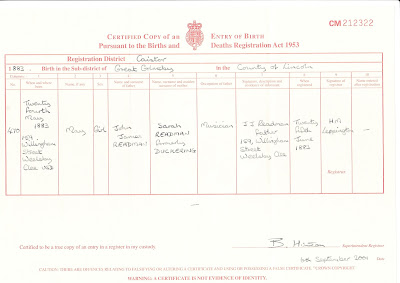 CERTIFIED COPY of an ENTRY OF BIRTH
Pursuant to the Births and Deaths Registration Act 1953
CM 212322
Registration District Caistor
1883. Birth in the Sub-district of Great Grimsby in the County of Lincoln
Columns:- 1 2 3 4 5 6 7 8 9 10
No. When and where born Name, if any Sex Name and surname of father Name, surname and maiden surname of mother Occupation of father Signature, description and residence of informant When registered Signature of registrar Name entered after registration
470
Twenty
Fourth
May
1883
159,
Willingham
Street
Weelsby
Clee USD
Mary
Girl
John
James
READMAN
Sarah
READMAN
formerly
DUCKERING
Musician
J J Readman
Father
159, Willingham
Street
Weelsby Clee
Twenty
June
1883
H M
Registrar
—
Certified to be a true copy of an entry in a register in my custody.
B.
Superintendent Registrar
September
Date
CAUTION: THERE ARE OFFENCES RELATING TO FALSIFYING OR ALTERING A CERTIFICATE AND USING OR POSSESSING A FALSE CERTIFICATE. ©CROWN COPYRIGHT
WARNING: A CERTIFICATE IS NOT EVIDENCE OF IDENTITY.